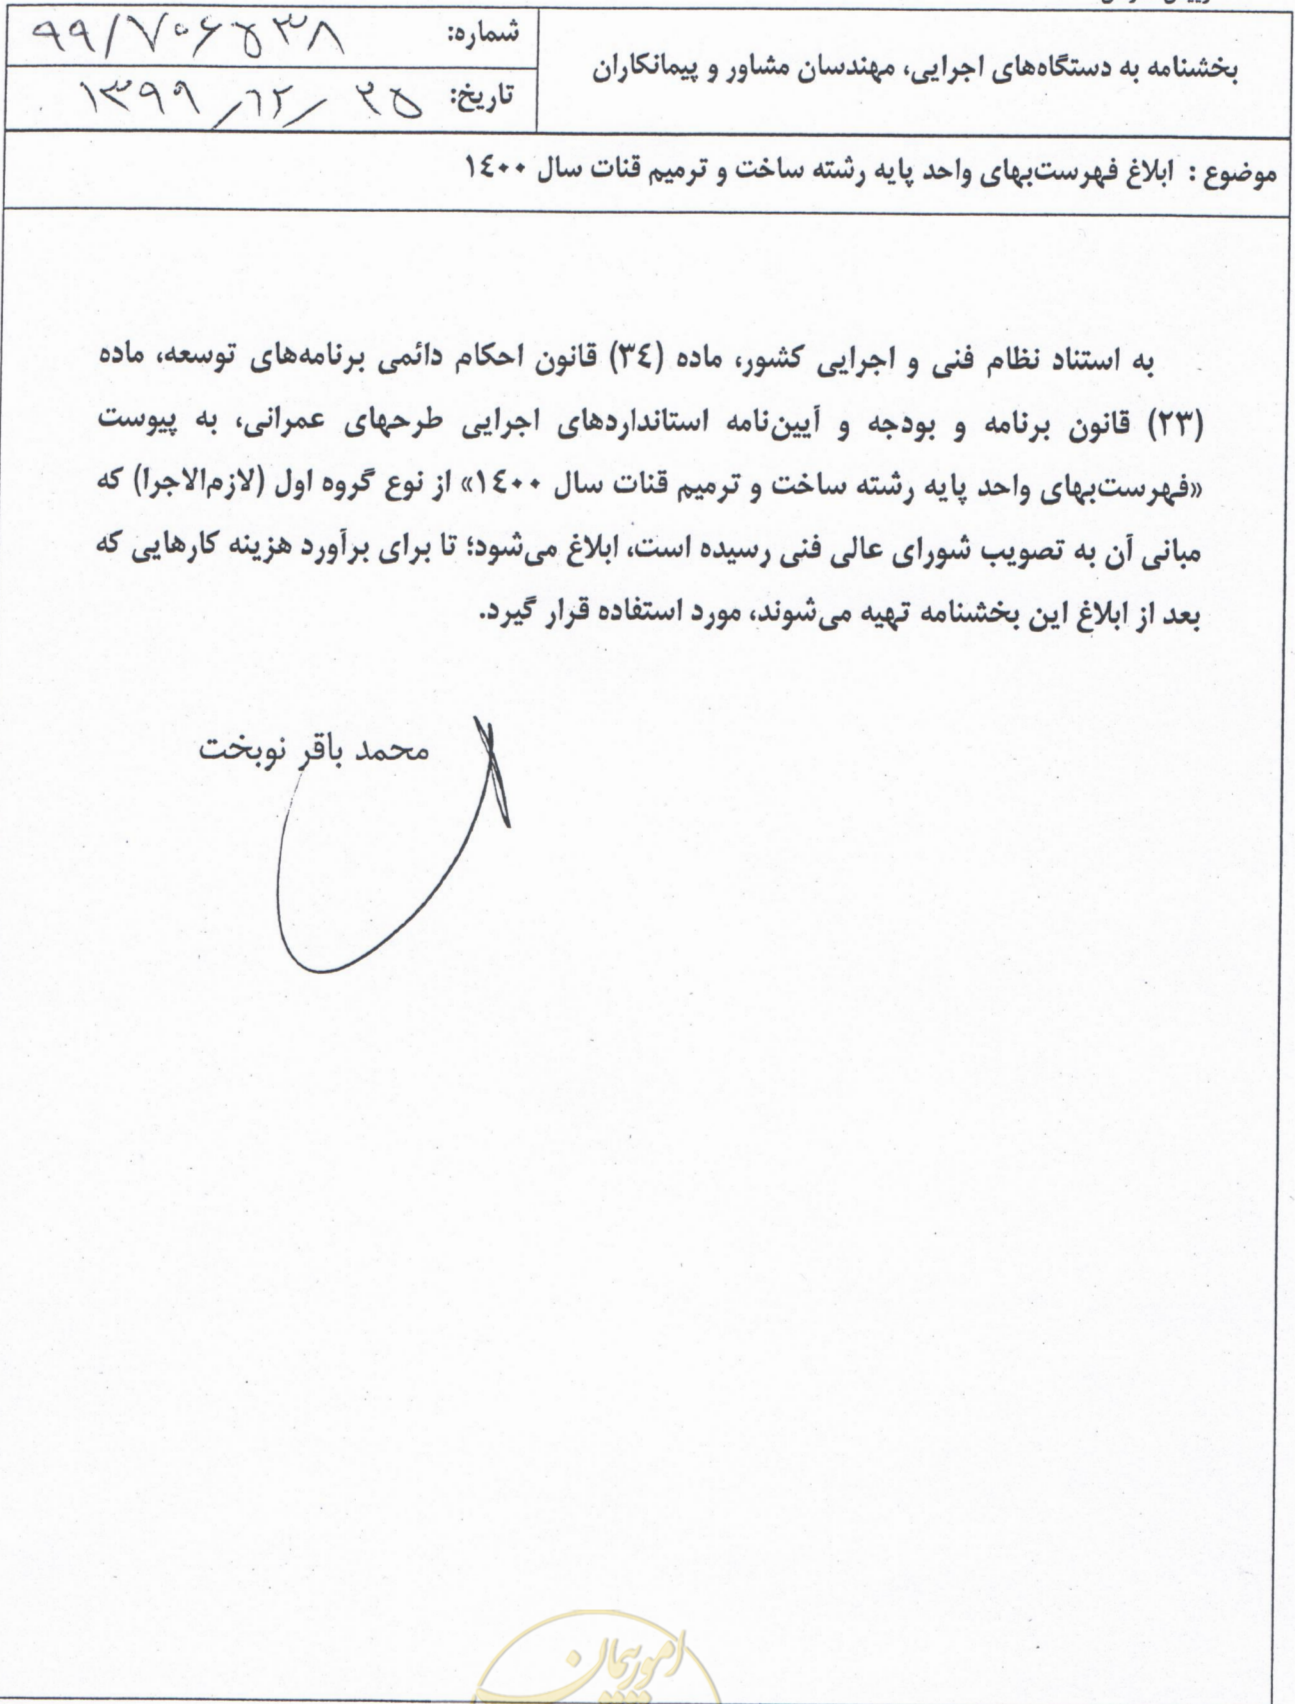 بخشنامه به دستگاه‌های اجرایی، مهندسان مشاور و پیمانکاران
شماره: ۹۹/۷۰۶۵۳۸
تاریخ: ۱۳۹۹/۱۲/۲۵
موضوع : ابلاغ فهرست‌بهای واحد پایه رشته ساخت و ترمیم قنات سال ۱۴۰۰
به استناد نظام فنی و اجرایی کشور، ماده (۳۴) قانون احکام دائمی برنامه‌های توسعه، ماده
(۲۳) قانون برنامه و بودجه و آیین‌نامه استانداردهای اجرایی طرحهای عمرانی، به پیوست
«فهرست‌بهای واحد پایه رشته ساخت و ترمیم قنات سال ۱۴۰۰» از نوع گروه اول (لازم‌الاجرا) که
مبانی آن به تصویب شورای عالی فنی رسیده است، ابلاغ می‌شود؛ تا برای برآورد هزینه کارهایی که
بعد از ابلاغ این بخشنامه تهیه می‌شوند، مورد استفاده قرار گیرد.
محمد باقر نوبخت
امور پیمان